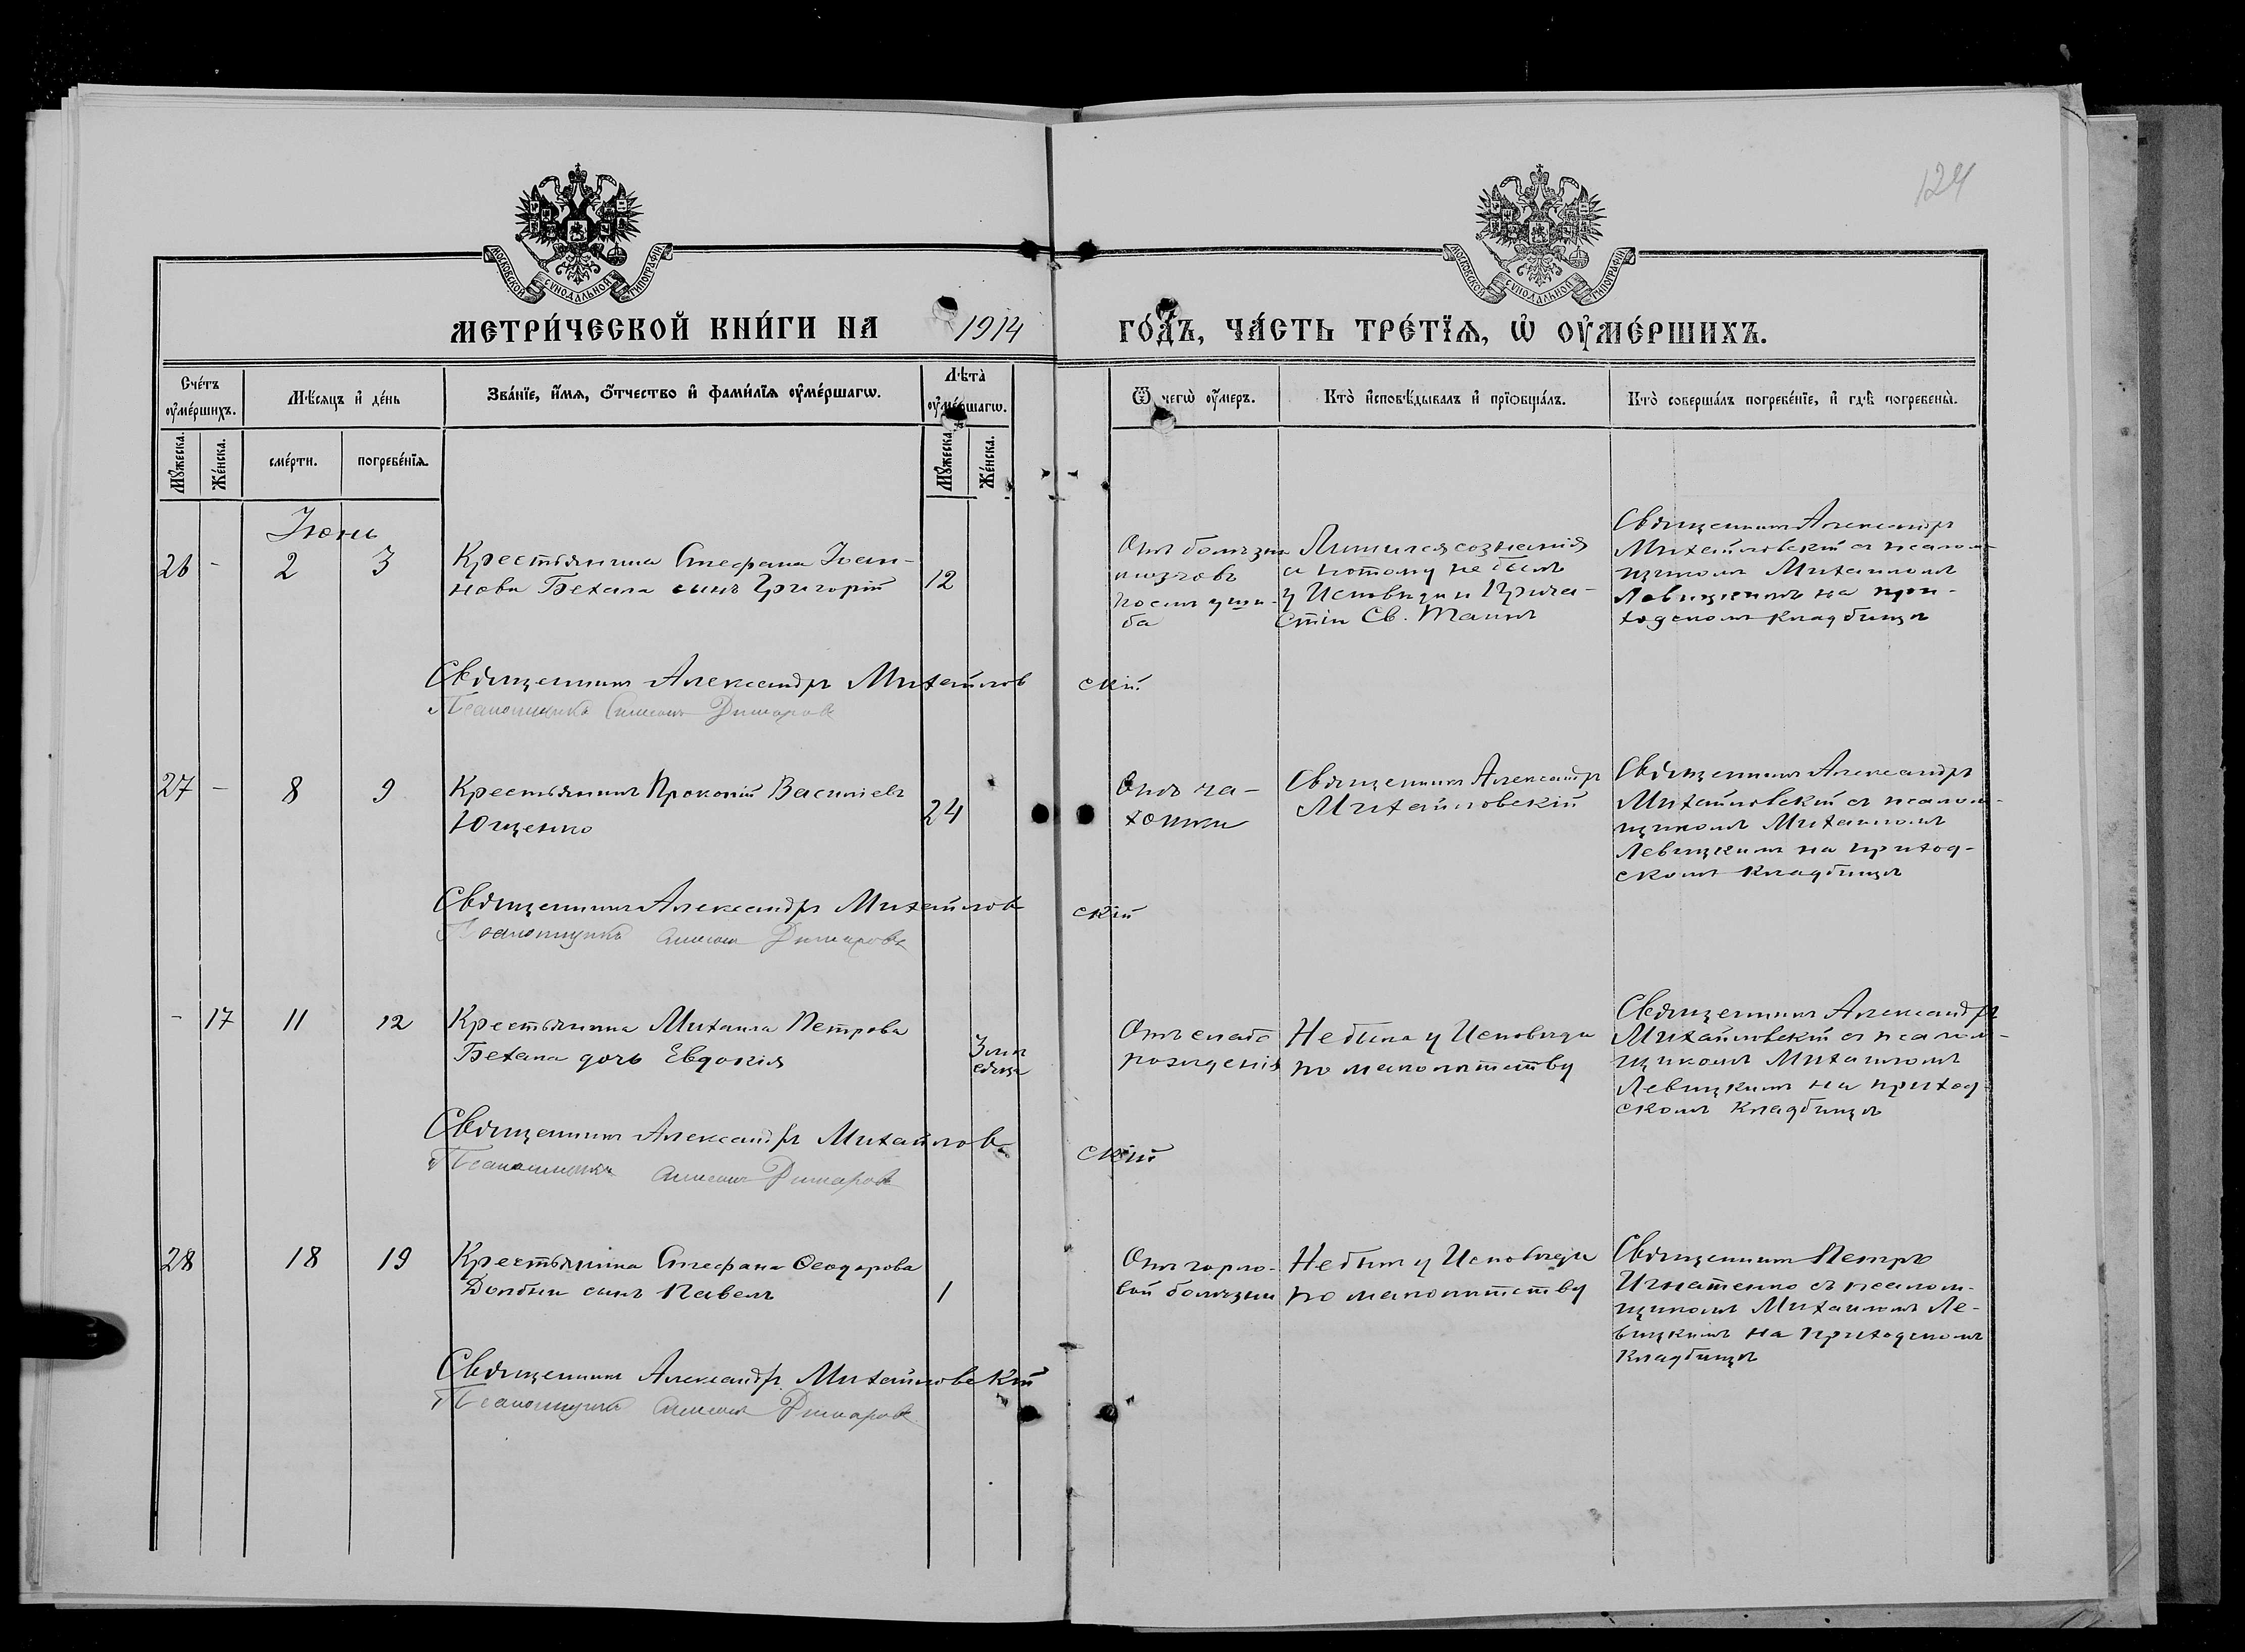 124
МОСКОВСКОЙ СѴНОДАЛЬНОЙ ТИПОГРАФІИ
МОСКОВСКОЙ СѴНОДАЛЬНОЙ ТИПОГРАФІИ
МЕТРИ́ЧЕСКОЙ КНИ́ГИ НА 1914 ГО́ДЪ, ЧА́СТЬ ТРЕ́ТЇѦ, Ѡ҆ ОУ҆МЕ́РШИХЪ.
Сче́тъ оу҆ме́ршихъ.
Мѣ́сяцъ и҆ де́нь
Зва́нїе, и҆́мѧ, о҆́тчество и҆ фами́лїѧ оу҆ме́ршагѡ.
Лѣта̀ оу҆ме́ршагѡ.
Ѿ чегѡ̀ оу҆́меръ.
Кто̀ и҆сповѣ́дывалъ и҆ прїѡбща́лъ.
Кто̀ соверша́лъ погребе́нїе, и҆ гдѣ̀ погребены̀.
Мꙋ́жеска.
Же́нска.
сме́рти.
погребе́нїѧ.
Мꙋ́жеска
Же́нска.
Іюнь
26 - 2 3
Крестьянина Стефана Іоан-
нова Бехала сынъ Григорій
12
Отъ болѣзни
мозговъ
послѣ уши-
ба
Лишился сознанія
и потому не былъ
у Исповѣди и Прича-
стіи Св. Таинъ
Священникъ Александръ
Михайловскій съ псалом-
щикомъ Михаиломъ
Левицкимъ на при-
ходскомъ кладбищѣ
Священникъ Александръ Михайловскій
Псаломщикъ Симеонъ Димаровъ
27 - 8 9
Крестьянинъ Прокопій Васильевъ
Ющенко
24
Отъ ча-
хотки
Священникъ Александръ
Михайловскій
Священникъ Александръ
Михайловскій съ псалом-
щикомъ Михаиломъ
Левицкимъ на приход-
скомъ кладбищѣ
Священникъ Александръ Михайловскій
Псаломщикъ Симеонъ Димаровъ
- 17 11 12
Крестьянина Михаила Петрова
Бехала дочь Евдокія
3 мѣсяца
Отъ слабо
рожденія
Не была у Исповѣди
по малолѣтству
Священникъ Александръ
Михайловскій съ псалом-
щикомъ Михаиломъ
Левицкимъ на приход
скомъ кладбищѣ
Священникъ Александръ Михайловскій
Псаломщикъ Симеонъ Димаровъ
28 18 19
Крестьянина Стефана Ѳеодорова
Долбни сынъ Павелъ
1
Отъ горло-
вой болѣзни
Не былъ у Исповѣди
по малолѣтству
Священникъ Петръ
Игнатенко съ псалом-
щикомъ Михаиломъ Ле-
вицкимъ на приходскомъ
кладбищѣ
Священникъ Александръ Михайловскій
Псаломщикъ Симеонъ Димаровъ